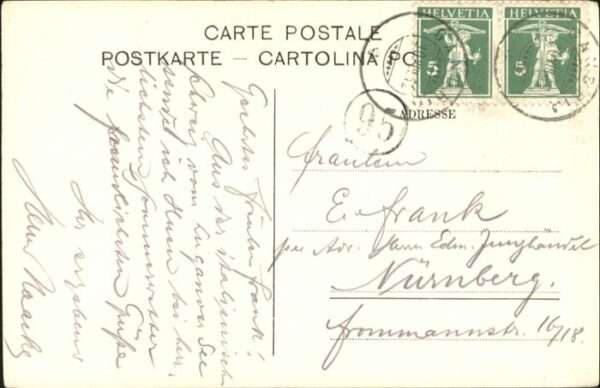 CARTE POSTALE
POSTKARTE — CARTOLINA PO
HELVETIA
HELVETIA
5
5
95
ADRESSE
Geehrtes Fräulein Frank!
Aus der italienisch
Schweiz vom Luganer See
sendet ich Ihnen bei herr-
lichstem Sommerwetter
die freundlichsten Grüße
Ihr ergebener
Hans
Fräulein
E. Frank
per Adr. Herrn Edm. Junghändel
Nürnberg.
Frommannstr. 16/18.